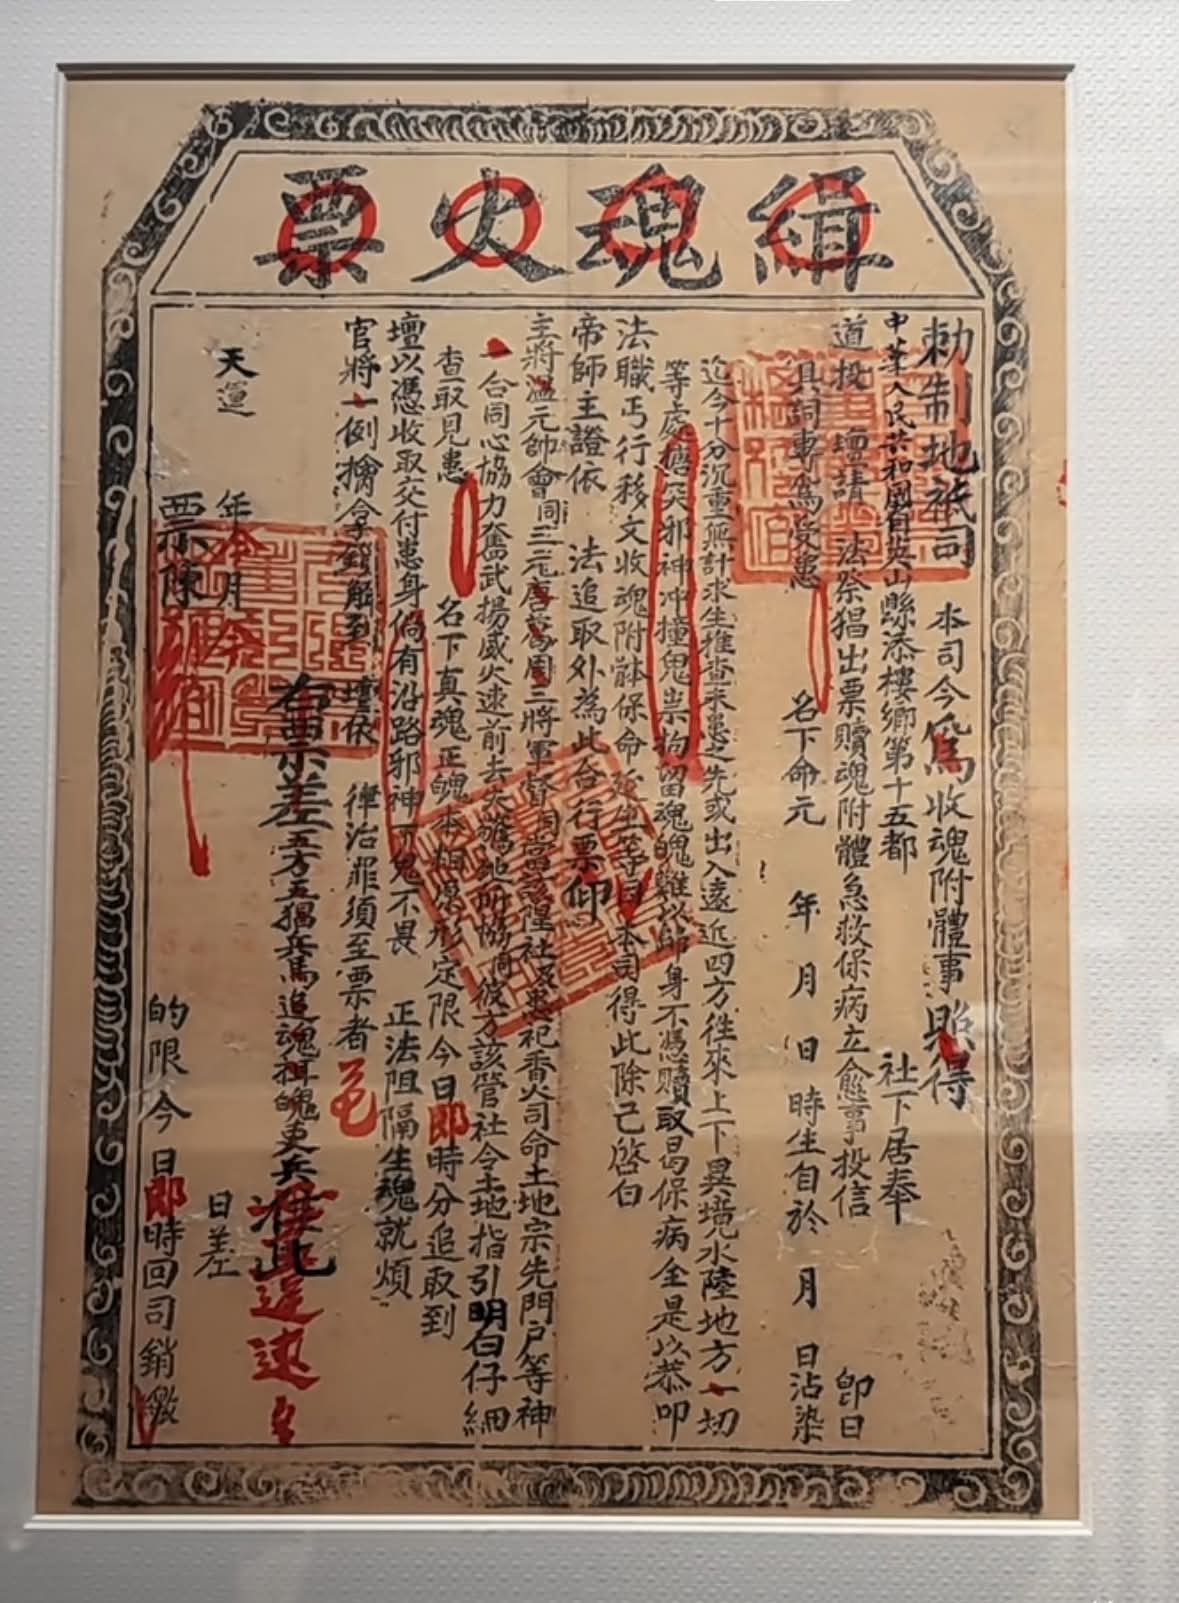 緝魂火票
勅制地祇司 本司今為收魂附體事照得
中華人民共和國自英山縣添樓鄉第十五都 社下居奉
道投 壇請 法祭猖出票贖魂附體急救保病立愈事投信 即日
具詞專為受患 名下命元 年 月 日 時生自於 月 日沾染
迄今十分沉重無計求生推查未患之先或出入遠近四方往來上下異境水陸地方一切
等處 突邪神冲撞鬼祟拘留魂魄難以歸身不憑贖取曷保病全是以恭叩
法職丐行移文收魂附體保命延生等因本司得此除已啓白
帝師主證依 法追取外為此合行票仰
主將温元帥會同三元唐葛周三將軍督同當 隍社 患祀香火司命土地宗先門戸等神
一合同心協力奮武揚威火速前去 彼方該管社令土地指引明白仔細
查取見患 名下真魂正魄本相原形定限今日即時分追取到
壇以憑收取交付患身倘有沿路邪神 鬼不畏 正法阻隔生魂就煩
官將一例擒拿鎖解到 壇依 律治罪須至票者
右票差五方五猖兵馬追魂 魄吏兵 准此
天運 年 今 月 今 日差
票陳 的限今日即時回司銷繳